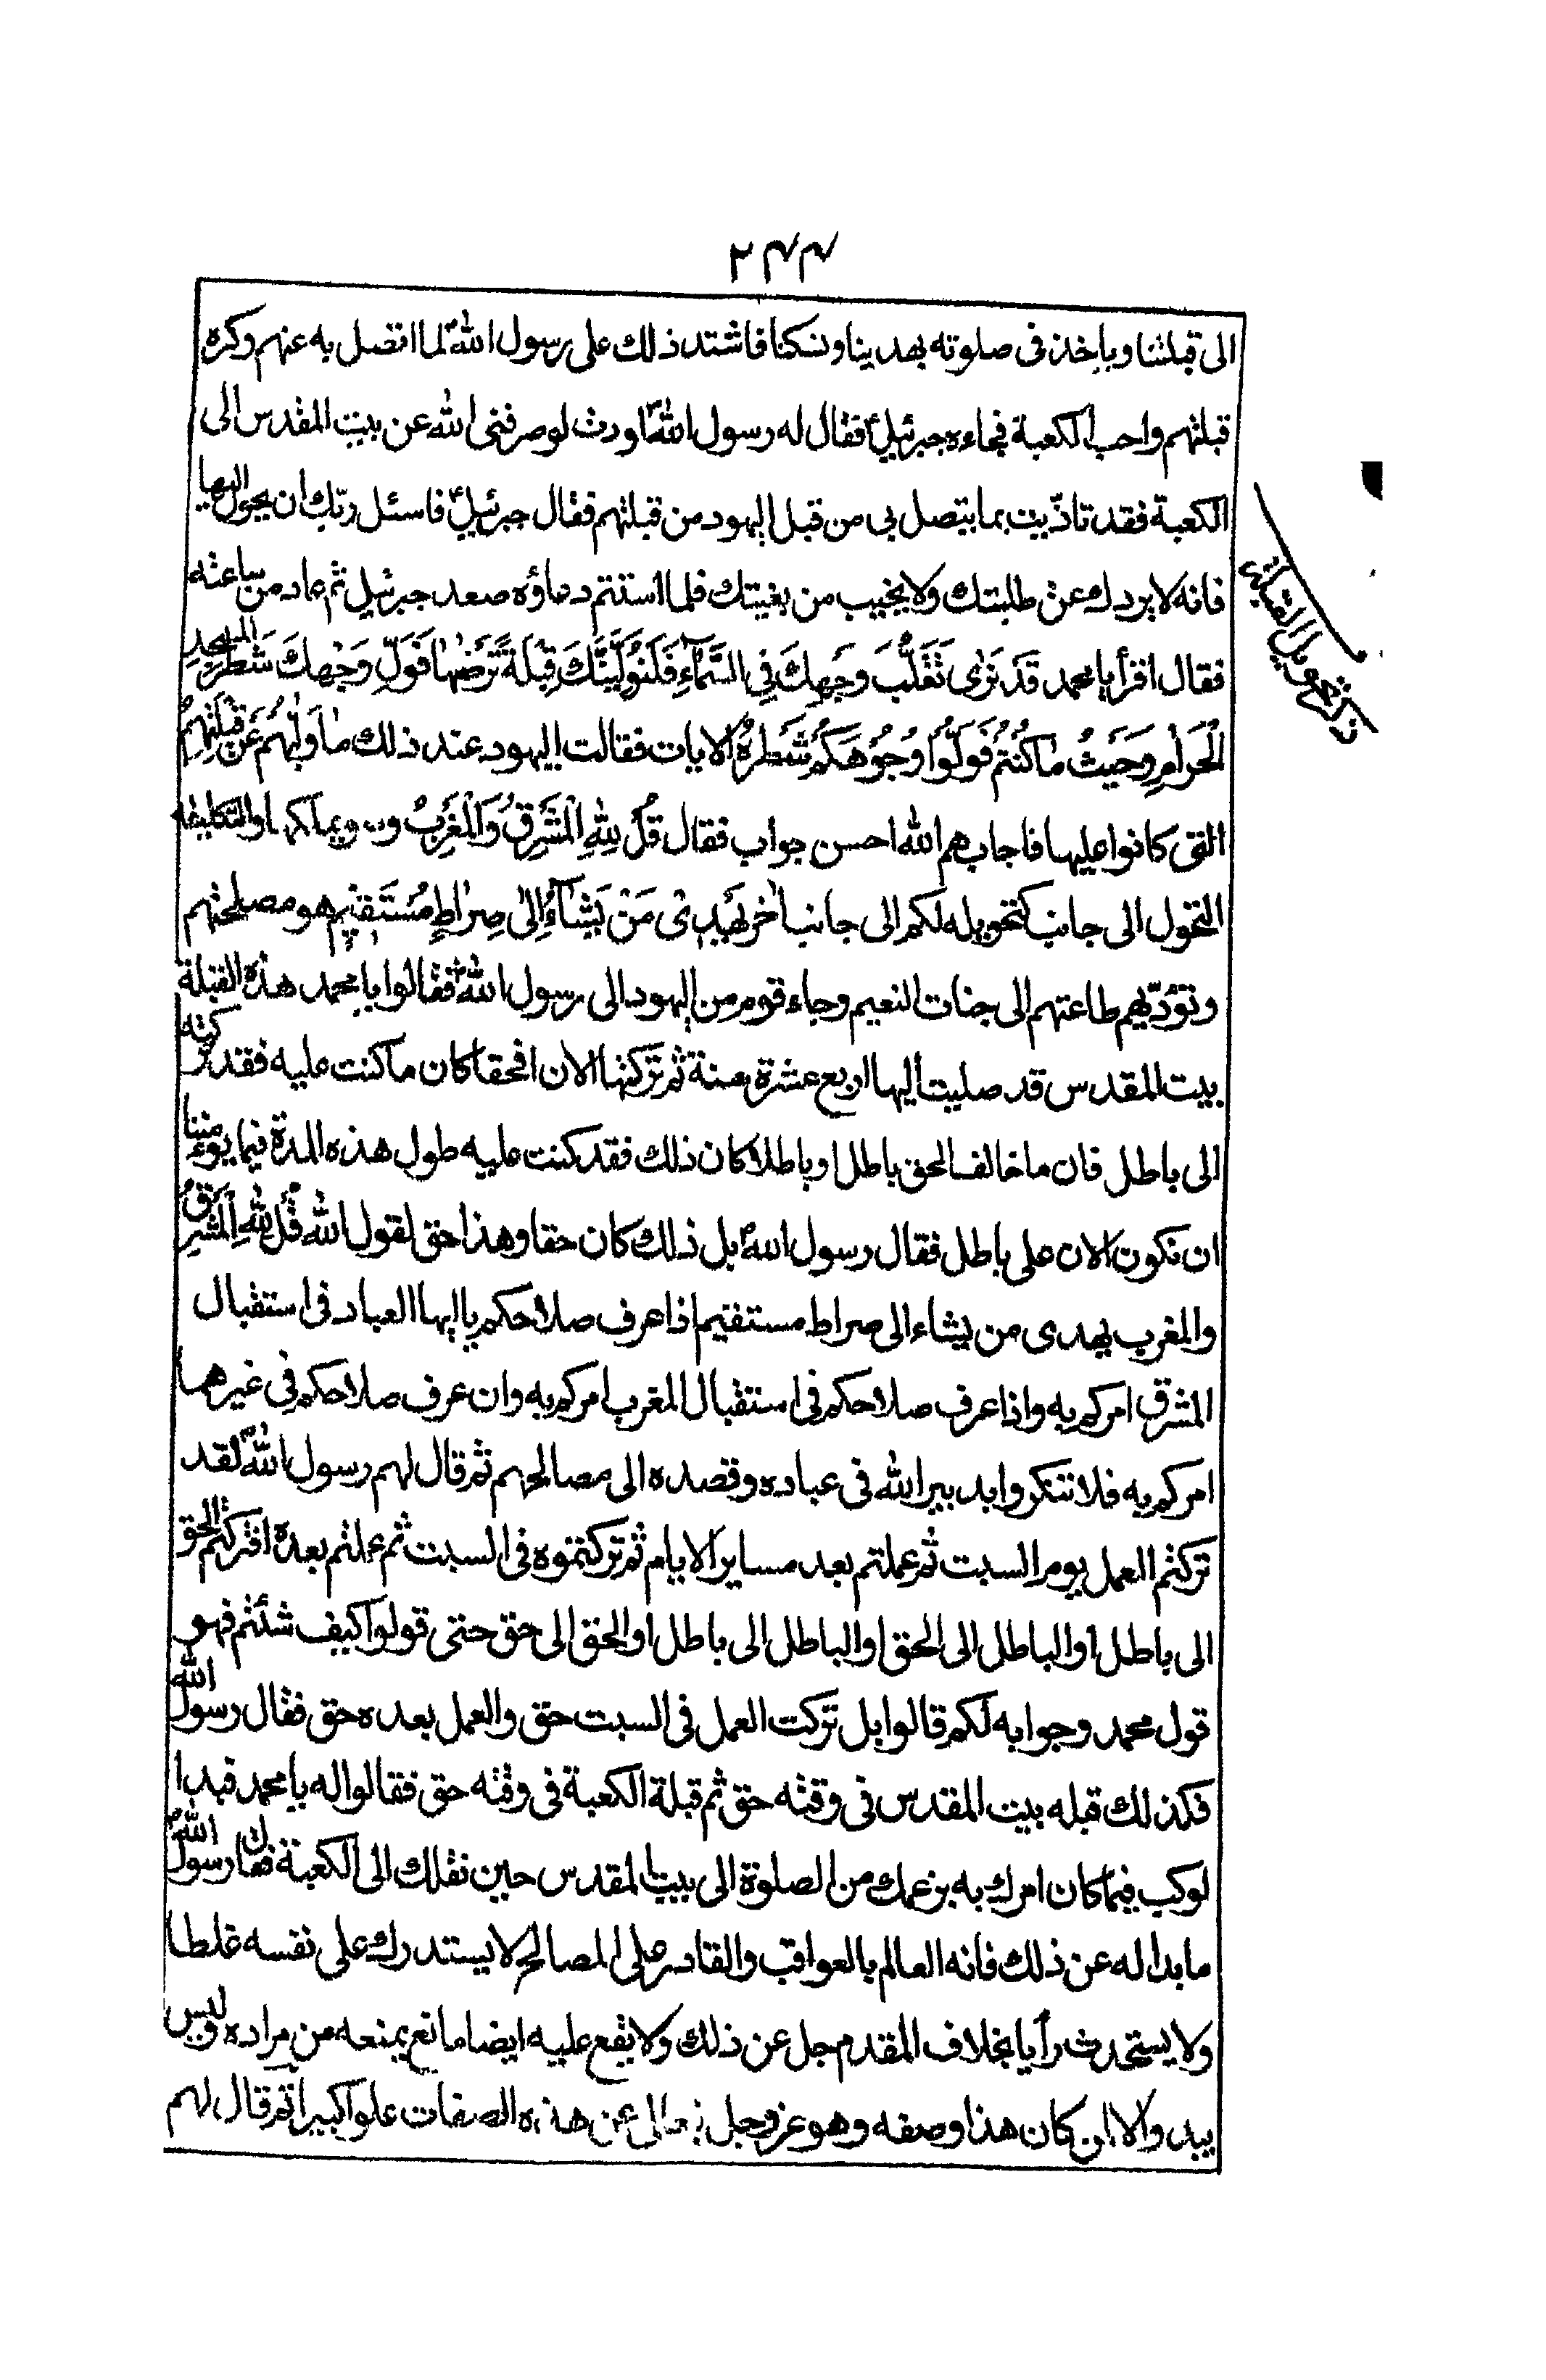 ٢٤٤
الى قبلتنا وياخذ فى صلوته بهدينا ونسكنا فاشتد ذلك على رسول الله ص لما اتصل به عنهم وكره
قبلتهم واحب الكعبة فجاءه جبرئيل ع فقال له رسول الله ص وددت لو صرفنى الله عن بيت المقدس الى
الكعبة فقد تاذّيت بما يتصل بى من قبل اليهود من قبلتهم فقال جبرئيل ع فاسئل ربّك ان يحولك اليها
فانه لا يردك عن طلبتك ولا يخيب من بغيتك فلما استتم دعاؤه صعد جبرئيل ثم عاد من ساعته
فقال اقرأ يا محمد قَدْ نَرٰى تَقَلُّبَ وَجْهِكَ فِى السَّمٰٓاءِ فَلَنُوَلِّيَنَّكَ قِبْلَةً تَرْضٰيهٰا فَوَلِّ وَجْهَكَ شَطْرَ الْمَسْجِدِ
الْحَرٰامِ وَحَيْثُ مٰا كُنْتُمْ فَوَلُّوا وُجُوهَكُمْ شَطْرَهُ الايات فقالت اليهود عند ذلك مٰا وَلّٰيهُمْ عَنْ قِبْلَتِهِمُ
التى كانوا عليها فاجابهم الله احسن جواب فقال قُلْ لِلّٰهِ الْمَشْرِقُ وَالْمَغْرِبُ وهو يملكهما والتكليفه
التحول الى جانب كتحويله لكم الى جانب اٰخر يَهْدِى مَنْ يَشٰٓاءُ اِلىٰ صِرٰاطٍ مُسْتَقٖيمٍ هو مصلحتهم
وتؤدّيهم طاعتهم الى جنات النعيم وجاء قوم من اليهود الى رسول الله ص فقالوا يا محمد هذه القبلة
بيت المقدس قد صليت اليها اربع عشرة سنة ثم تركتها الان افحقا كان ما كنت عليه فقد تركته
الى باطل فان ما خالف الحق باطل او باطلا كان ذلك فقد كنت عليه طول هذه المدة فما يؤمننا
ان تكون الان على باطل فقال رسول الله ص بل ذلك كان حقا وهذا حق لقول الله قُلْ لِلّٰهِ الْمَشْرِقُ
والمغرب يهدى من يشاء الى صراط مستقيم اذا عرف صلاحكم يا ايها العباد فى استقبال
المشرق امركم به واذا عرف صلاحكم فى استقبال المغرب امركم به وان عرف صلاحكم فى غيرهما
امركم به فلا تنكروا تدبير الله فى عباده وقصده الى مصالحهم ثم قال لهم رسول الله ص لقد
تركتم العمل يوم السبت ثم عملتم بعد سساير الايام ثم تركتموه فى السبت ثم عملتم بعده افتركتم الحق
الى باطل او الباطل الى الحق او الباطل الى باطل او الحق الى حق حتى قولوا كيف شئتم فهو
قول محمد وجوابه لكم قالوا بل تركت العمل فى السبت حق والعمل بعده حق فقال رسول الله
فكذلك قبله بيت المقدس فى وقته حق ثم قبلة الكعبة فى وقته حق فقالوا له يا محمد فبدا
لربك فيما كان امرك به بزعمك من الصلوة الى بيت المقدس حين نقلك الى الكعبة فقال رسول الله ص
ما بدا له عن ذلك فانه العالم بالعواقب والقادر على المصالح لا يستدرك على نفسه غلطا
ولا يستحدث رأيا بخلاف المقدم جل عن ذلك ولا يقع عليه ايضا مانع يمنعه من مراده وليس
يبدو الا لمن كان هذا وصفه وهو عز وجل تعالى عن هذه الصفات علوا كبيرا ثم قال لهم
ذكر تحويل القبلة